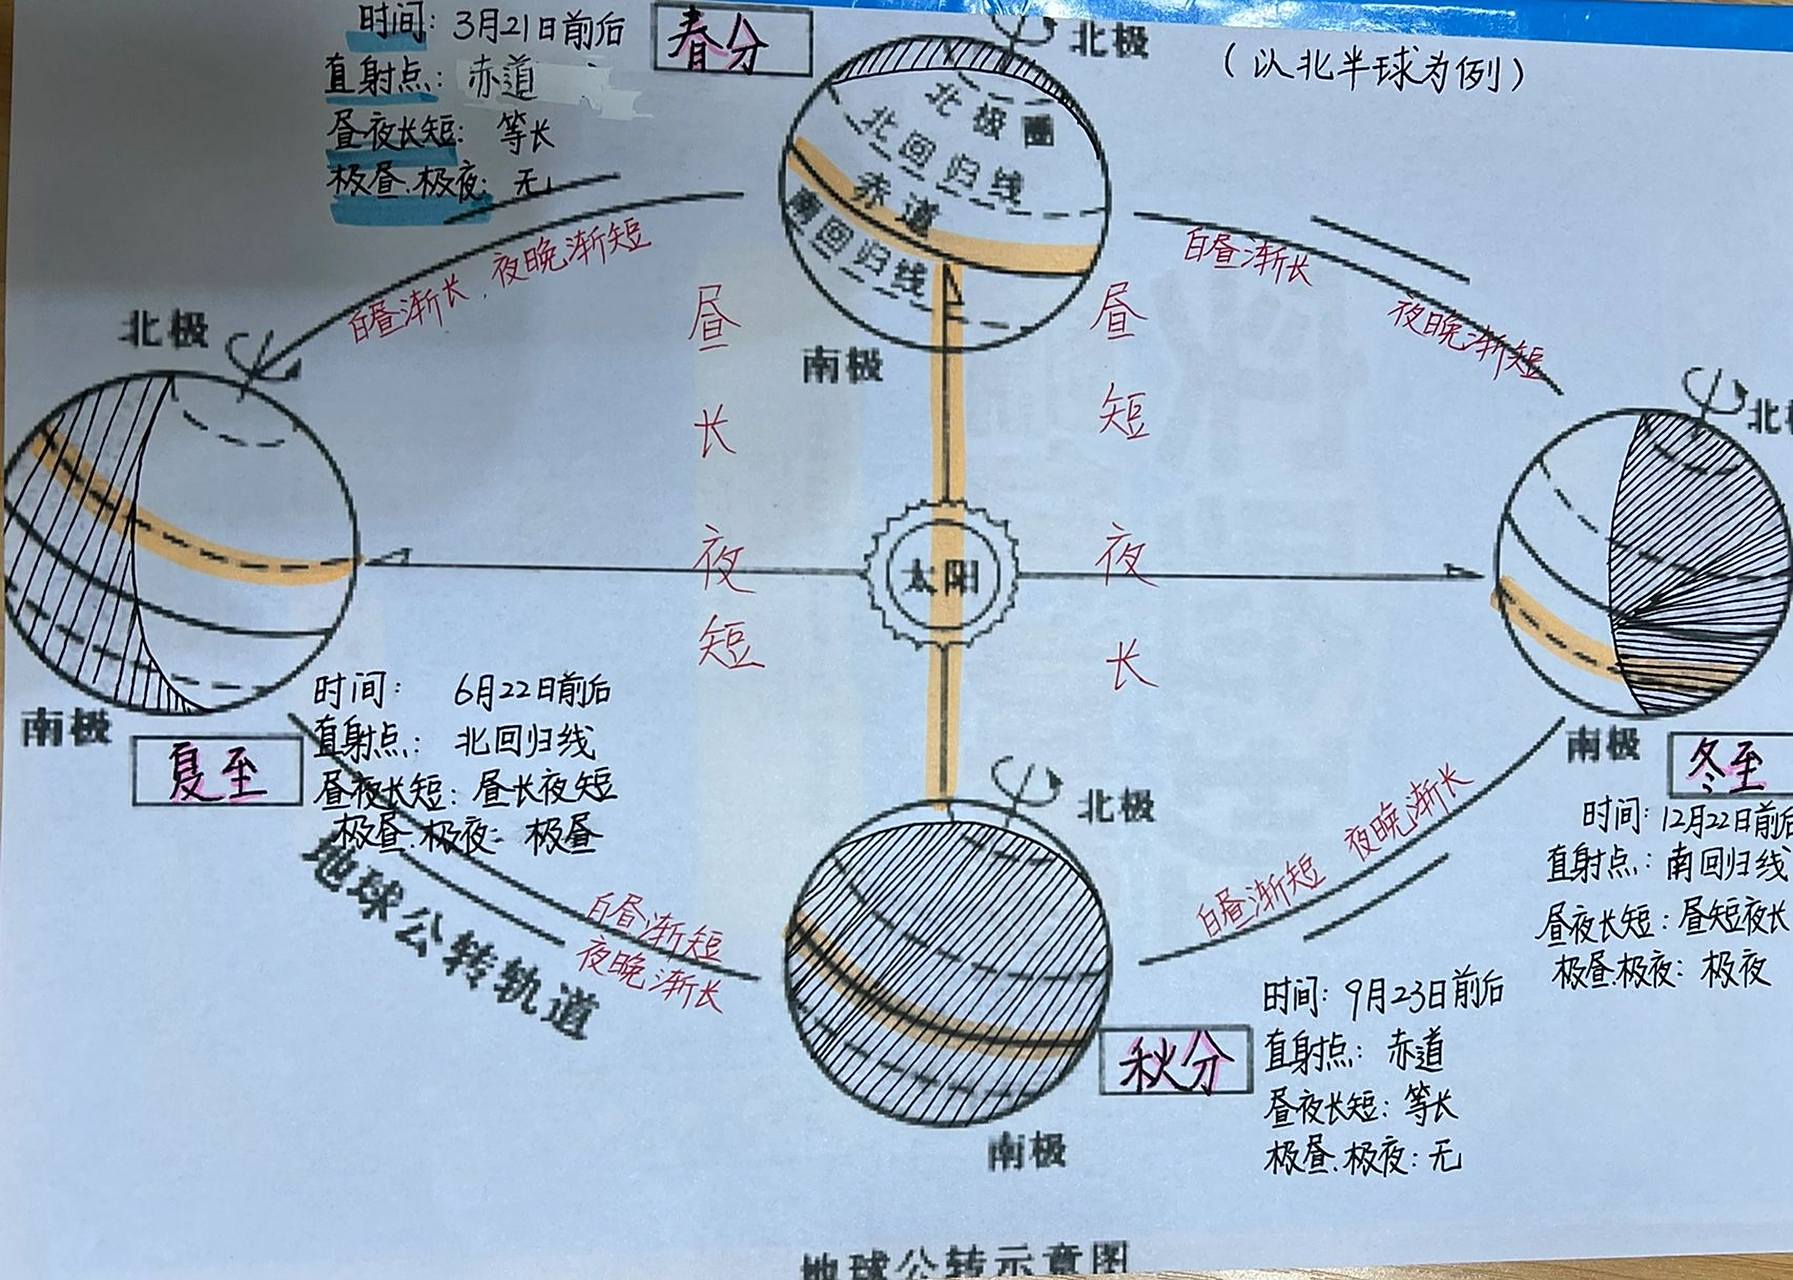 时间：3月21日前后
春分
直射点：赤道
昼夜长短：等长
极昼.极夜：无
（以北半球为例）
北极
北极圈
北回归线
赤道
南回归线
南极
白昼渐长，夜晚渐短
白昼渐长
夜晚渐短
昼长夜短
昼短夜长
太阳
北极
南极
夏至
时间：6月22日前后
直射点：北回归线
昼夜长短：昼长夜短
极昼.极夜：极昼
地球公转轨道
白昼渐短
夜晚渐长
北极
南极
秋分
时间：9月23日前后
直射点：赤道
昼夜长短：等长
极昼.极夜：无
白昼渐短 夜晚渐长
北极
南极
冬至
时间：12月22日前后
直射点：南回归线
昼夜长短：昼短夜长
极昼.极夜：极夜
地球公转示意图